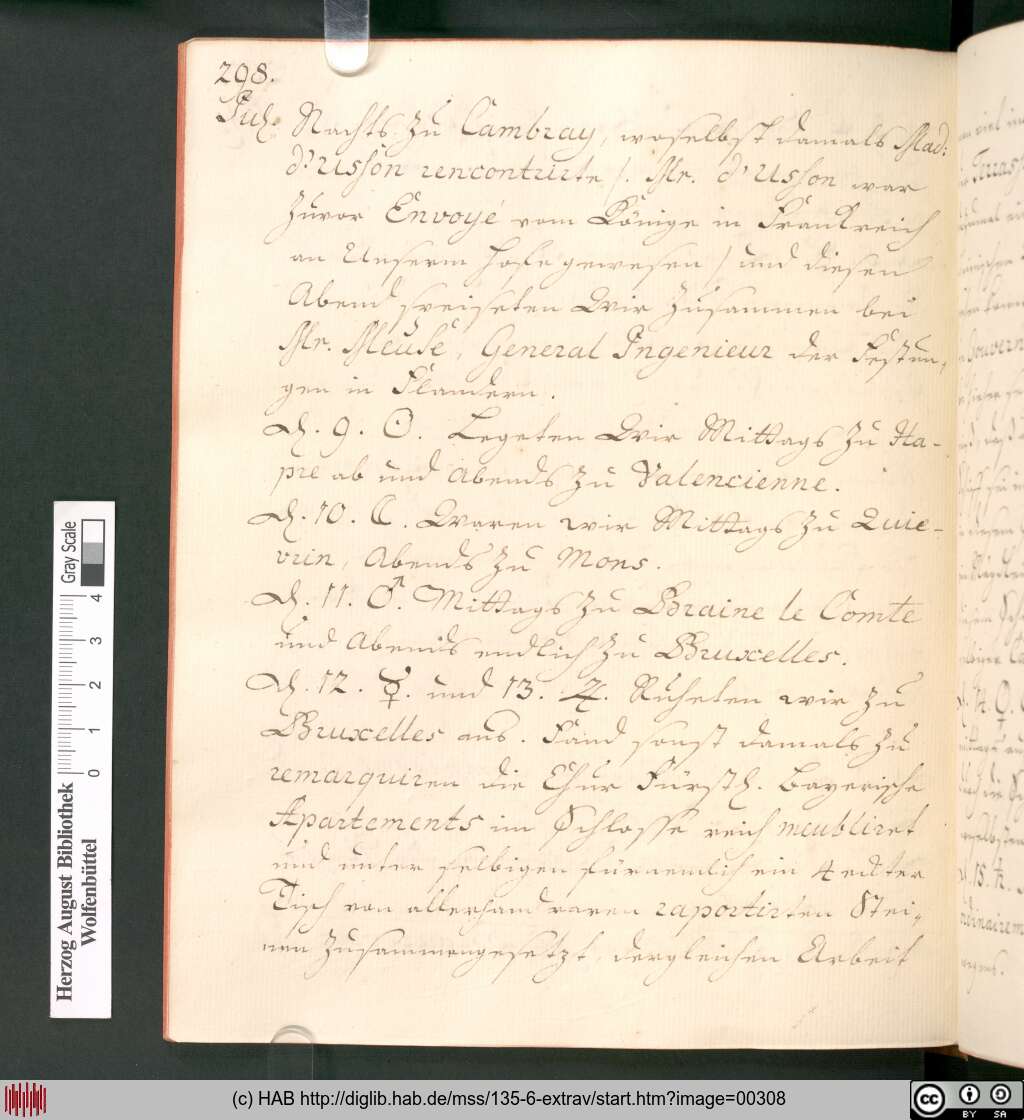 298.
Jul. Nachts zu Cambray, woselbst damals Mad:
d'Usson rencontrirte /. Mr. d'Usson war
zuvor Envoyé vom Könige in Franckreich
an Unserm Hofe gewesen / und diesen
Abend speiseten Wir zusammen bei
Mr. Meuse, General Ingenieur der Festun-
gen in Flandern.
D. 9. ☉. Legeten Wir Mittags zu Ha-
pre ab und Abends zu Valencienne.
D. 10. ☾. Waren wir Mittags zu Quie-
vrin, Abends zu Mons.
D. 11. ♂. Mittags zu Braine le Comte
und Abends endlich zu Bruxelles.
D. 12. ☿. und 13. ♃. Ruheten wir zu
Bruxelles aus. Fand sonst damals zu
remarquiren die Chur Fürstl. Bayerische
Apartements im Schlosse reich meubliret
und unter selbigen fürnemlich ein 4 eckter
Tisch von allerhand raren raportirten Stei-
nen zusammengesetzt, dergleichen Arbeit
Herzog August Bibliothek
Wolfenbüttel
Gray Scale
0 1 2 3 4
(c) HAB http://diglib.hab.de/mss/135-6-extrav/start.htm?image=00308
cc BY SA